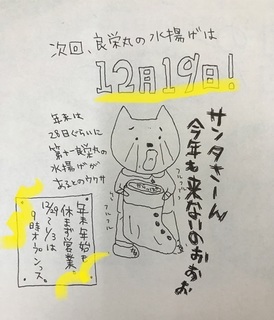 次回、良栄丸の水揚げは
12月19日!
サンタさーん
今年も来ないのぉぉぉ
年末は
28日ぐらいに
第十一良栄丸の
水揚げが
あるとのウワサ
年末年始も
休まず営業
12/29〜1/3は
9時オープンっス。
プルプル
プルプル